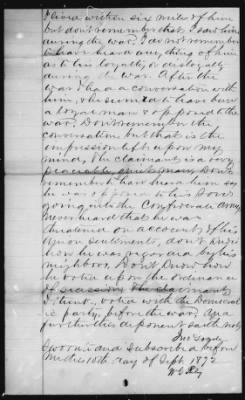 I lived within six miles of him
but don't remember that I saw him
during the war. I do not remember
to have heard anything of him
as to his loyalty or disloyalty
during the war. After the
war I had a conversation with
him, & he seemed to have been
a loyal man & opposed to the
war. Don't remember the
conversation but that is the
impression left upon my
mind. The claimant is a very
peaceable, quiet man. Don't
remember to have heard him say
he was opposed to his sons
going into the Confederate Army
Never heard that he was
threatened on account of his
union sentiments, don't know
how he was regarded by his
neighbors, Don't know how
he voted upon the ordinance
of secession. The claimant,
I think, voted with the Democrat
ic party, before the war. And
further this deponent saith not
Sworn to and subscribed before
me this 10th day of Sept 1872